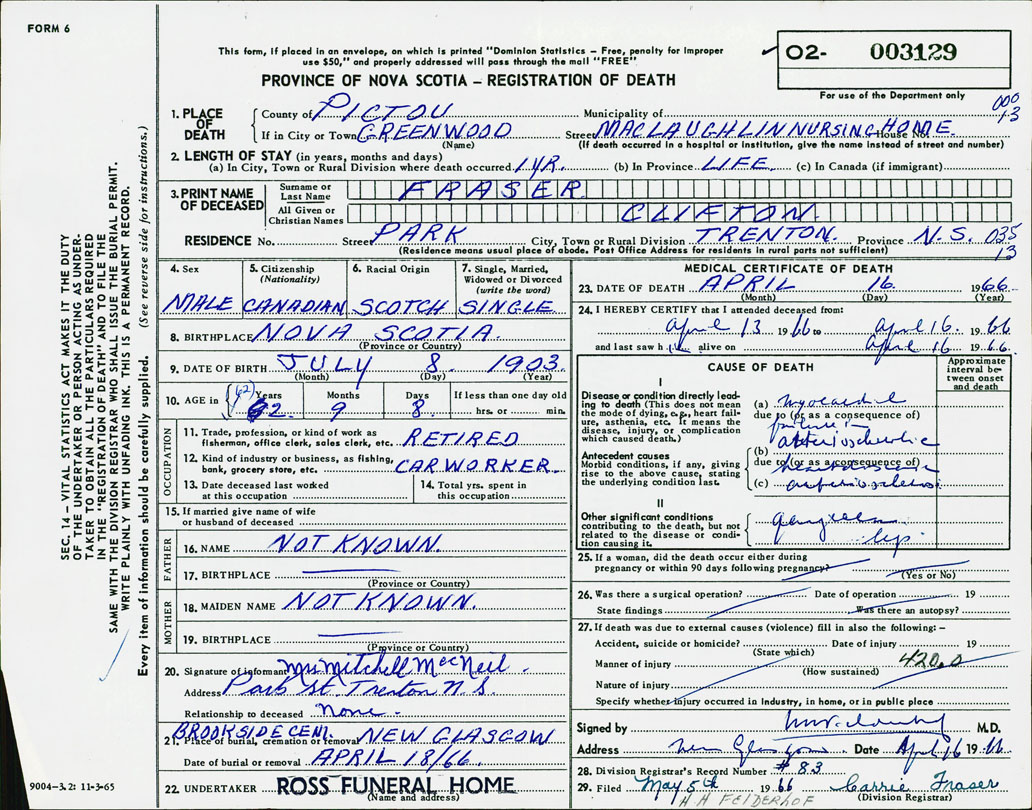 FORM 6
This form, if placed in an envelope, on which is printed "Dominion Statistics – Free, penalty for improper
use $50," and properly addressed will pass through the mail "FREE"
PROVINCE OF NOVA SCOTIA – REGISTRATION OF DEATH
02- 003129
For use of the Department only
000
13
1. PLACE OF DEATH
County of PICTOU Municipality of
If in City or Town GREENWOOD Street MACLAUGHLIN NURSING HOME House No.
(Name) (If death occurred in a hospital or institution, give the name instead of street and number)
2. LENGTH OF STAY (in years, months and days)
(a) In City, Town or Rural Division where death occurred 1 YR. (b) In Province LIFE (c) In Canada (if immigrant)
3. PRINT NAME OF DECEASED
Surname or Last Name FRASER
All Given or Christian Names CLIFTON
RESIDENCE No. Street PARK City, Town or Rural Division TRENTON Province N.S. 035
(Residence means usual place of abode. Post Office Address for residents in rural parts not sufficient) 13
4. Sex MALE
5. Citizenship (Nationality) CANADIAN
6. Racial Origin SCOTCH
7. Single, Married, Widowed or Divorced (write the word) SINGLE
8. BIRTHPLACE NOVA SCOTIA
(Province or Country)
9. DATE OF BIRTH JULY 8 1903
(Month) (Day) (Year)
10. AGE in Years Months Days If less than one day old
(62) 62 9 8 hrs. or min.
OCCUPATION
11. Trade, profession, or kind of work as fisherman, office clerk, sales clerk, etc. RETIRED
12. Kind of industry or business, as fishing, bank, grocery store, etc. CAR WORKER
13. Date deceased last worked at this occupation
14. Total yrs. spent in this occupation
15. If married give name of wife or husband of deceased
FATHER
16. NAME NOT KNOWN.
17. BIRTHPLACE
(Province or Country)
MOTHER
18. MAIDEN NAME NOT KNOWN.
19. BIRTHPLACE
(Province or Country)
20. Signature of informant Mrs Mitchell MacNeil
Address Park St. Trenton N.S.
Relationship to deceased None.
BROOKSIDE CEM.
21. Place of burial, cremation or removal NEW GLASGOW
Date of burial or removal APRIL 18/66.
22. UNDERTAKER ROSS FUNERAL HOME
(Name and address)
MEDICAL CERTIFICATE OF DEATH
23. DATE OF DEATH APRIL 16. 1966
(Month) (Day) (Year)
24. I HEREBY CERTIFY that I attended deceased from:
April 13 1966 to April 16. 1966
and last saw him alive on April 16 1966.
CAUSE OF DEATH
Approximate interval between onset and death
I
Disease or condition directly leading to death (This does not mean the mode of dying, e.g., heart failure, asthenia, etc. It means the disease, injury, or complication which caused death.)
(a) myocardial
due to (or as a consequence of)
failure
arteriosclerotic
Antecedent causes
Morbid conditions, if any, giving rise to the above cause, stating the underlying condition last.
(b)
due to (or as a consequence of)
(c) arteriosclerosis
II
Other significant conditions contributing to the death, but not related to the disease or condition causing it.
25. If a woman, did the death occur either during pregnancy or within 90 days following pregnancy?
(Yes or No)
26. Was there a surgical operation? Date of operation 19
State findings Was there an autopsy?
27. If death was due to external causes (violence) fill in also the following:–
Accident, suicide or homicide? Date of injury 19
(State which)
Manner of injury 420.0
(How sustained)
Nature of injury
Specify whether injury occurred in Industry, in home, or in public place
Signed by M.D.
Address New Glasgow Date Apl 16 1966
28. Division Registrar's Record Number # 83
29. Filed May 5th 1966 Carrie Fraser
(Division Registrar)
H H FELDERHOF
SEC. 14 – VITAL STATISTICS ACT MAKES IT THE DUTY
OF THE UNDERTAKER OR PERSON ACTING AS UNDER-
TAKER TO OBTAIN ALL THE PARTICULARS REQUIRED
IN THE "REGISTRATION OF DEATH" AND TO FILE THE
SAME WITH THE DIVISION REGISTRAR WHO SHALL ISSUE THE BURIAL PERMIT.
WRITE PLAINLY WITH UNFADING INK. THIS IS A PERMANENT RECORD.
Every item of information should be carefully supplied. (See reverse side for instructions.)
9004–3.2: 11-3-65